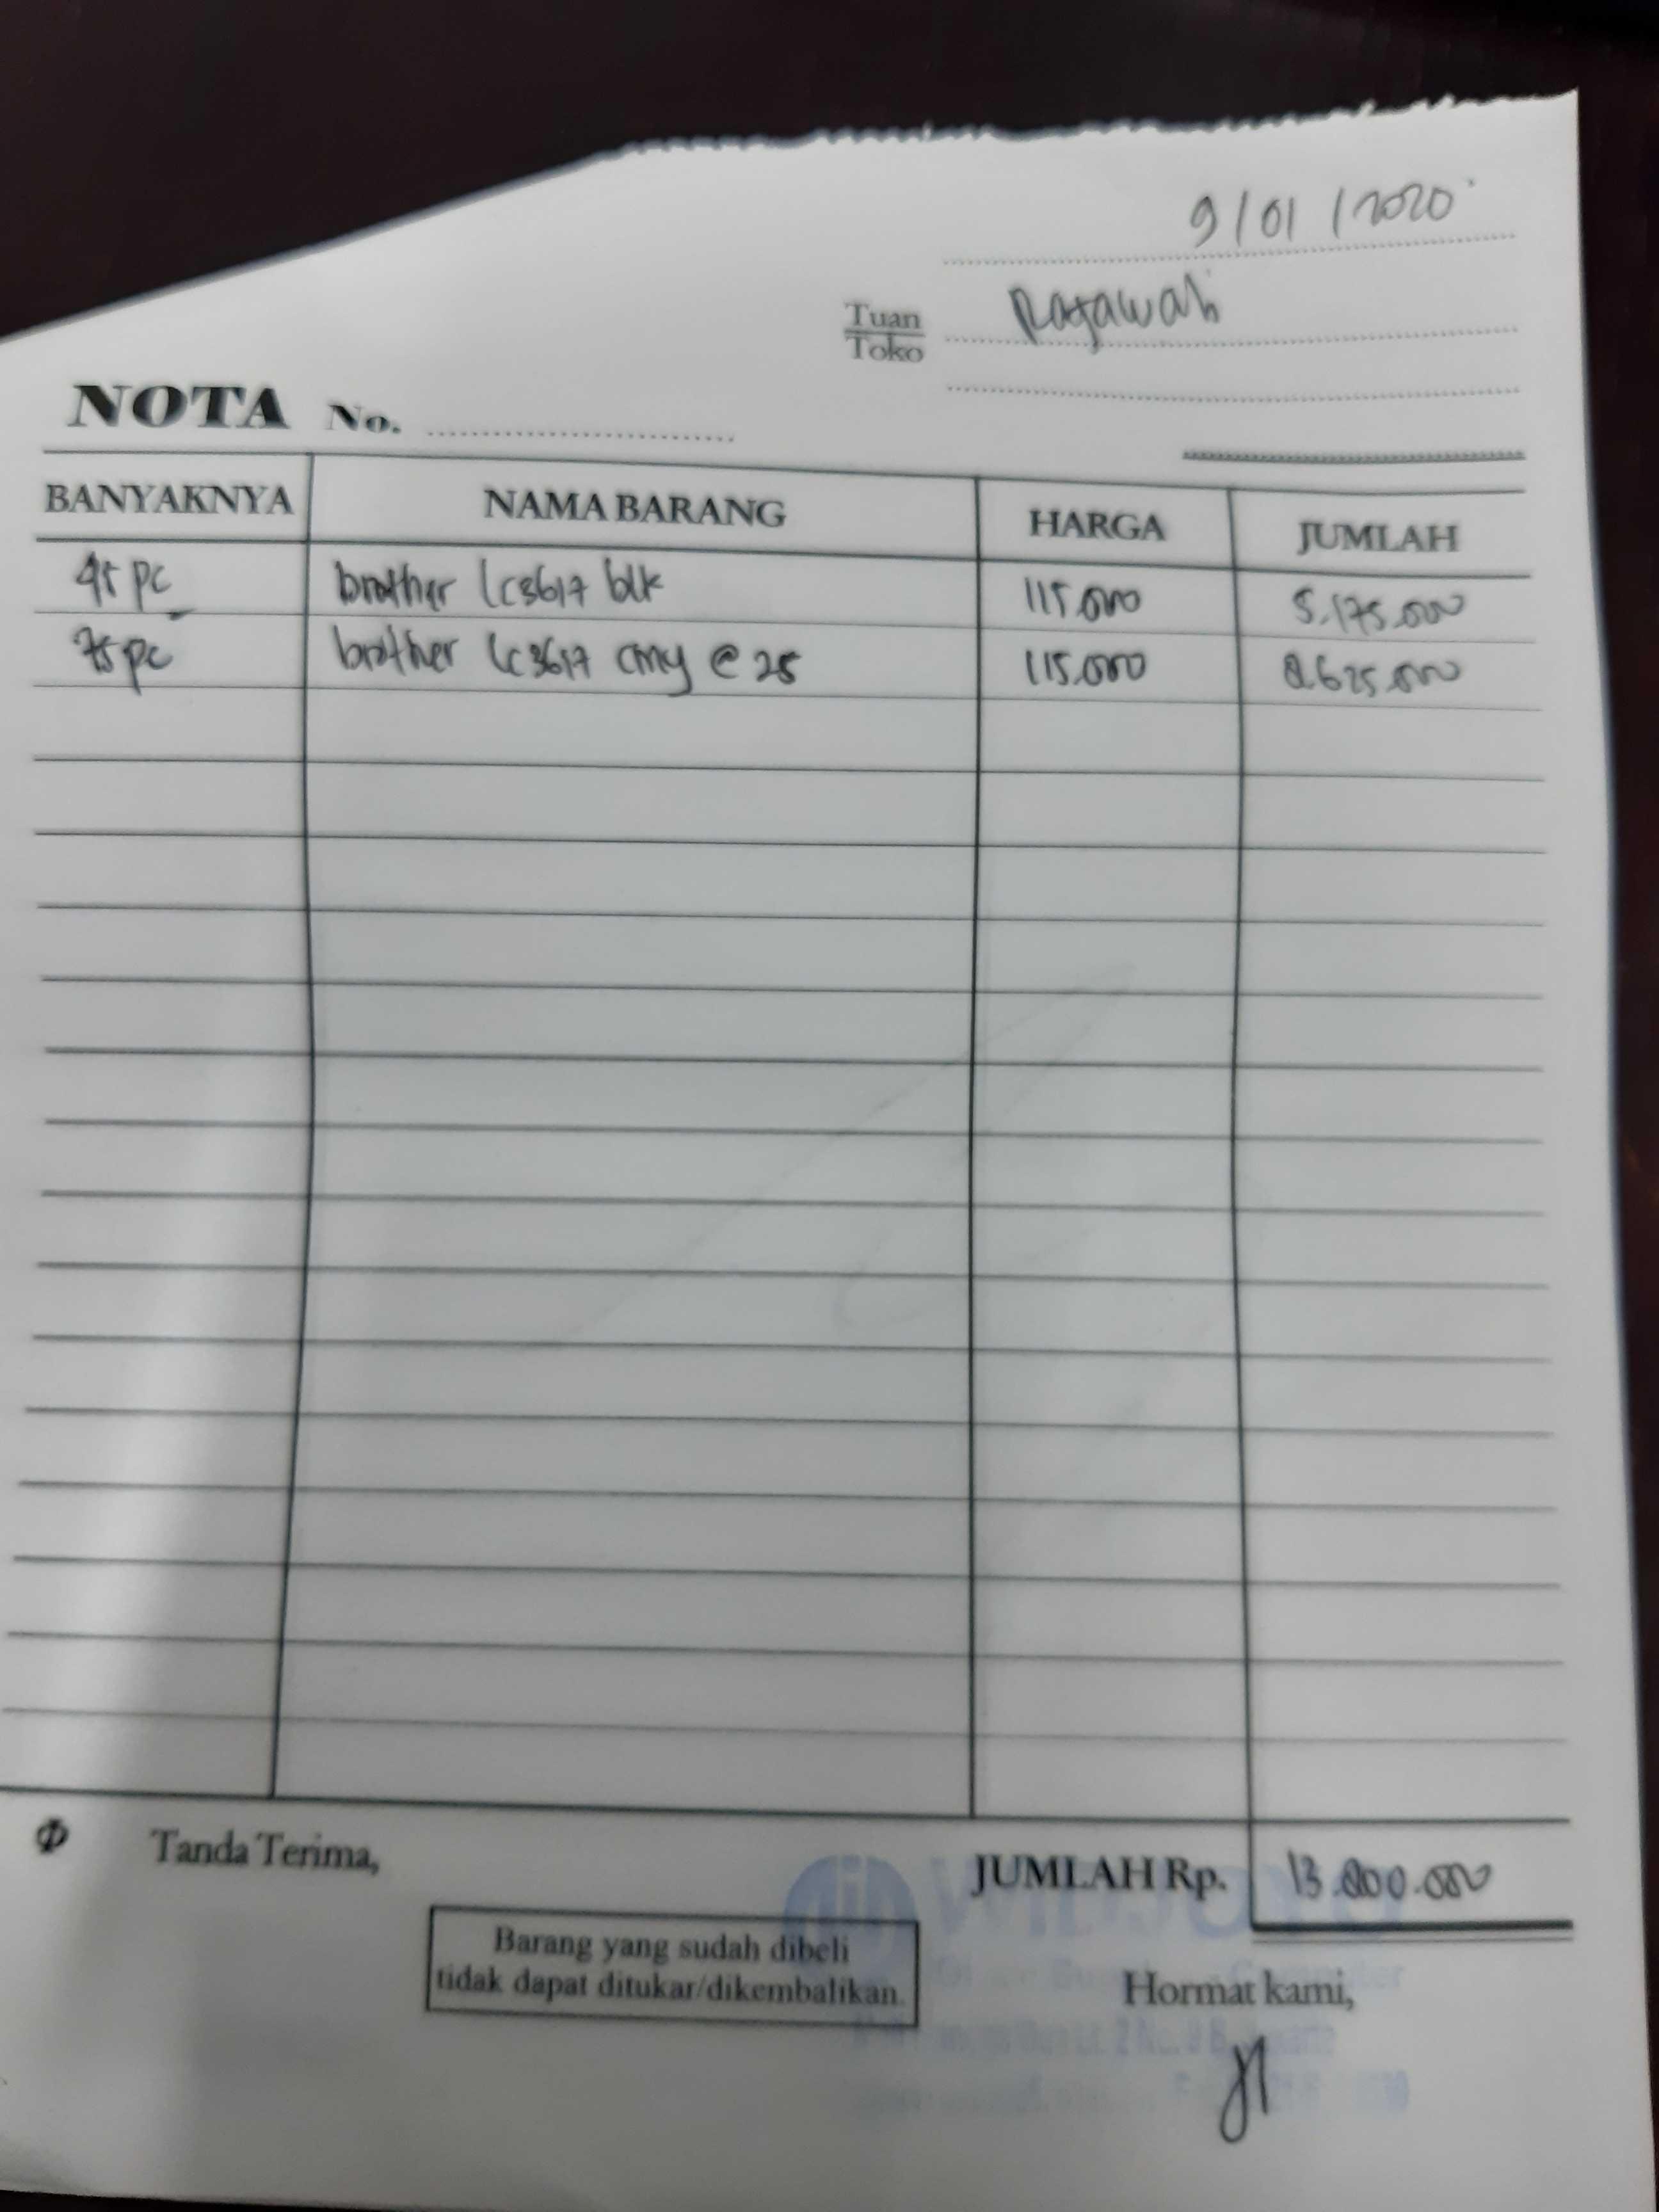 9/01/2020
Tuan
Toko
NOTA No.
BANYAKNYA NAMA BARANG HARGA JUMLAH
45 pc brother lc3617 blk 115.000 5.175.000
75 pc brother lc3617 cmy @ 25 115.000 8.625.000
Tanda Terima,
JUMLAH Rp. 13.800.000
Barang yang sudah dibeli
tidak dapat ditukar/dikembalikan.
Hormat kami,